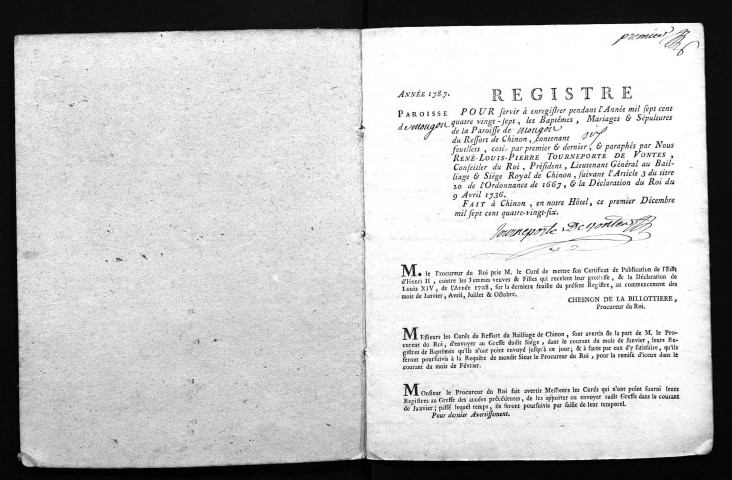 premier
ANNÉE 1787.
REGISTRE
PAROISSE
de Mougon
POUR servir à enregistrer pendant l'Année mil sept cent
quatre vingt-sept, les Baptêmes, Mariages & Sépultures
de la Paroisse de Mougon
du Ressort de Chinon, contenant six
feuillets, coté par premier & dernier, & paraphés par Nous
RENÉ-LOUIS-PIERRE TOURNEPORTE DE VONTES,
Conseiller du Roi, Président, Lieutenant Général au Bail-
liage & Siége Royal de Chinon, suivant l'Article 3 du titre
20 de l'Ordonnance de 1667, & la Déclaration du Roi du
9 Avril 1736.
FAIT à Chinon, en notre Hôtel, ce premier Décembre
mil sept cent quatre-vingt-six.
Tourneporte De Vontes
M. le Procureur du Roi prie M. le Curé de mettre son Certificat de Publication de l'Edit
d'Henri II, contre les Femmes veuves & Filles qui recelent leur grossesse, & la Déclaration de
Louis XIV, de l'Année 1708, sur la derniere feuille du présent Registre, au commencement des
mois de Janvier, Avril, Juillet & Octobre.
CHESNON DE LA BILLOTTIERE,
Procureur du Roi.
MEssieurs les Curés du Ressort du Bailliage de Chinon, sont avertis de la part de M. le Pro-
cureur du Roi, d'envoyer au Greffe dudit Siége, dans le courant du mois de Janvier, leurs Re-
gistres de Baptêmes qu'ils n'ont point envoyé jusqu'à ce jour; & à faute par eux d'y satisfaire, qu'ils
seront poursuivis à la Requête de mondit Sieur le Procureur du Roi, pour la remise d'iceux dans le
courant du mois de Février.
Monsieur le Procureur du Roi fait avertir Messieurs les Curés qui n'ont point fourni leurs
Registres au Greffe des années précédentes, de les apporter ou envoyer audit Greffe dans le courant
de Janvier; passé lequel temps, ils seront poursuivis par saisie de leur temporel.
Pour dernier Avertissement.